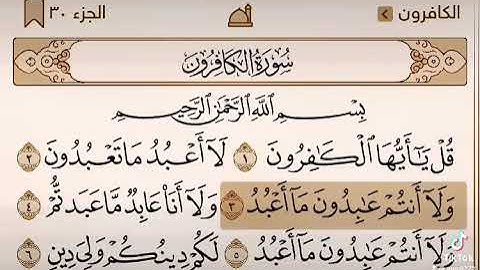 الكافرون
الجزء ٣٠
سُورَةُ الكَافِرُونَ
بِسْمِ اللَّهِ الرَّحْمَٰنِ الرَّحِيمِ
قُلْ يَٰٓأَيُّهَا ٱلْكَٰفِرُونَ ١ لَآ أَعْبُدُ مَا تَعْبُدُونَ ٢
وَلَآ أَنتُمْ عَٰبِدُونَ مَآ أَعْبُدُ ٣ وَلَآ أَنَا۠ عَابِدٌ مَّا عَبَدتُّمْ ٤
وَلَآ أَنتُمْ عَٰبِدُونَ مَآ أَعْبُدُ ٥ لَكُمْ دِينُكُمْ وَلِيَ دِينِ ٦
TikTok